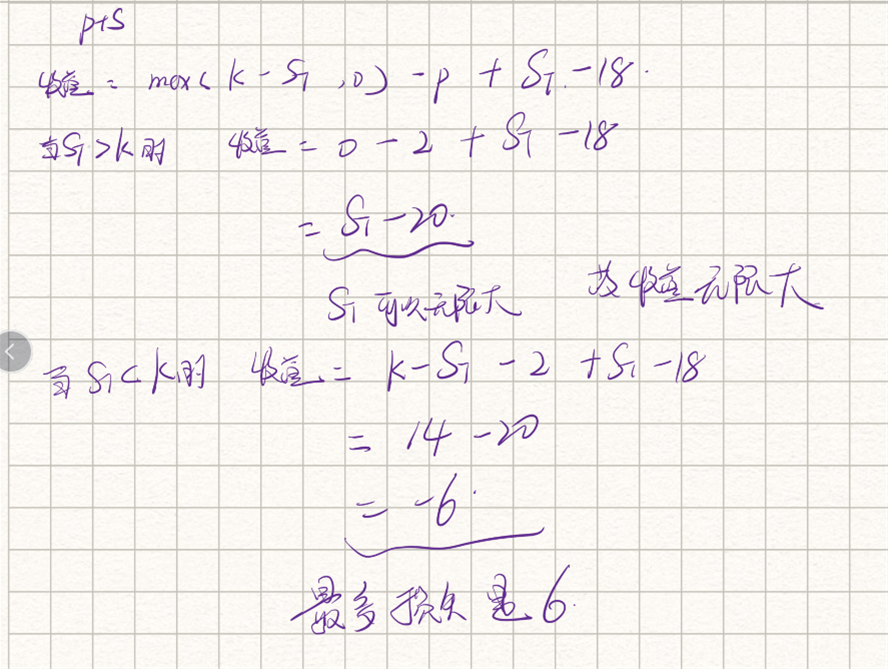 p+S
收益 = max( k - S_T , 0 ) - p + S_T - 18.
当 S_T > k 时 收益 = 0 - 2 + S_T - 18
= S_T - 20.
S_T 可以无限大 故收益无限大
当 S_T < k 时 收益 = k - S_T - 2 + S_T - 18
= 14 - 20
= -6.
最多损失是 6.